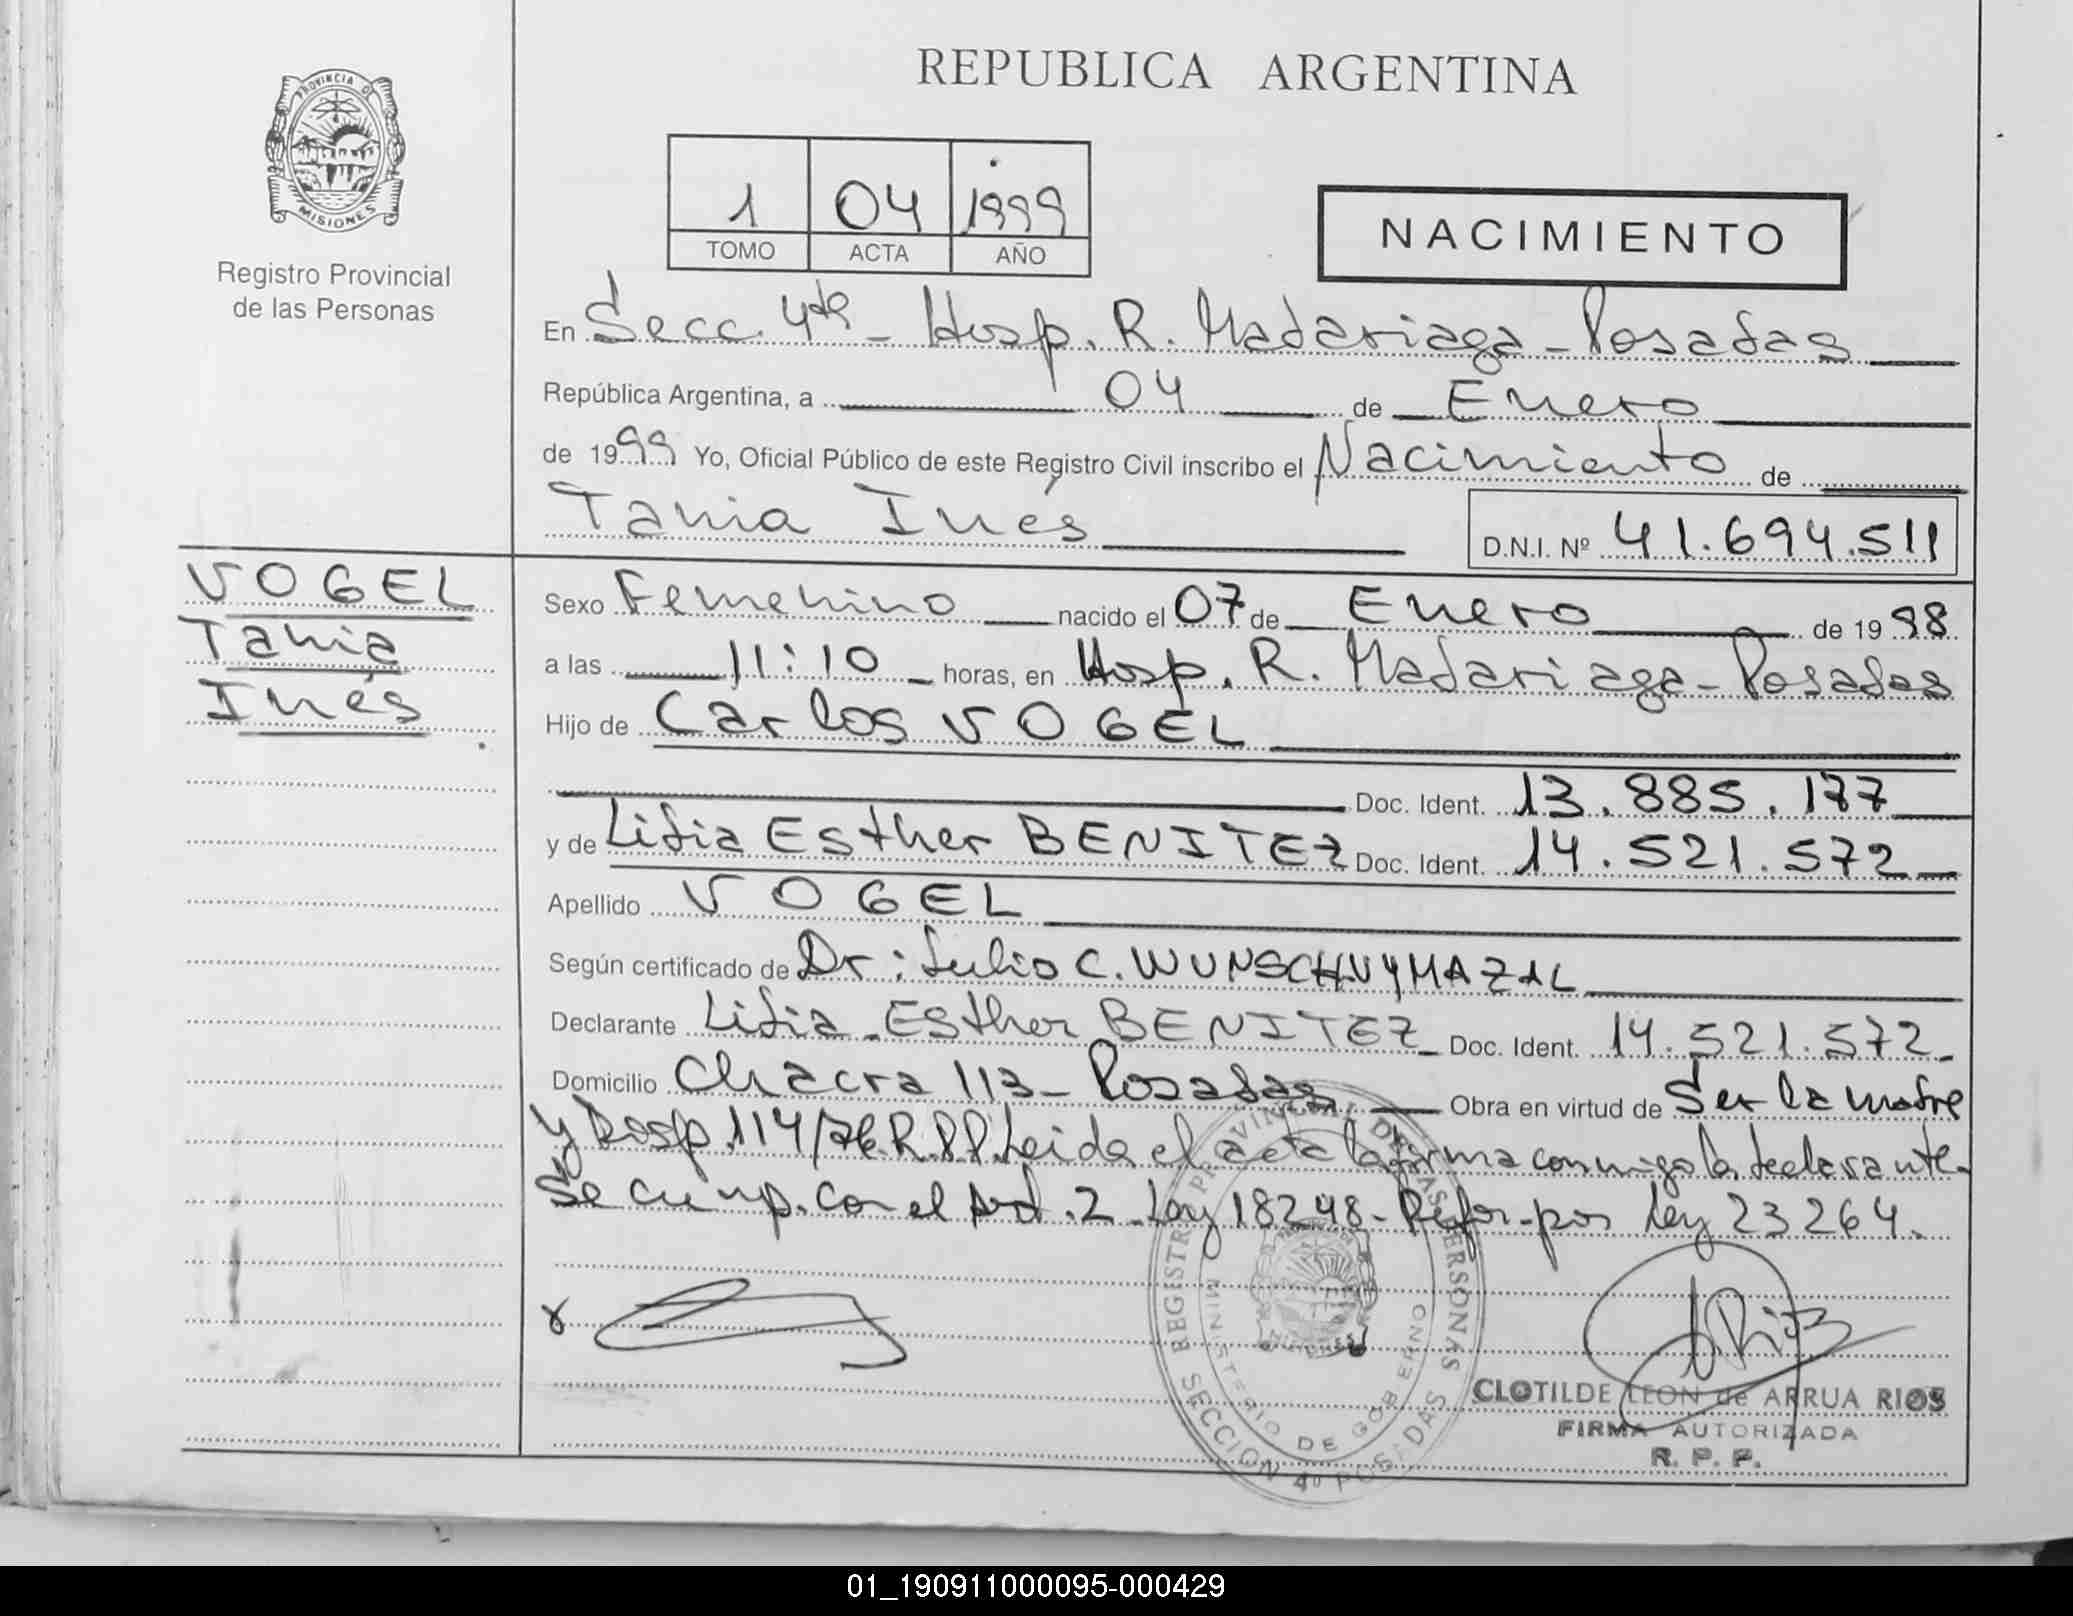 REPUBLICA ARGENTINA
PROVINCIA DE
MISIONES
Registro Provincial
de las Personas
1 04 1999
TOMO ACTA AÑO
NACIMIENTO
En Secc. 4ta - Hosp. R. Madariaga - Posadas
República Argentina, a 04 de Enero
de 1999 Yo, Oficial Público de este Registro Civil inscribo el Nacimiento de
Tania Inés
D.N.I. Nº 41.694.511
VOGEL
Tania
Inés
Sexo Femenino nacido el 07 de Enero de 1998
a las 11:10 horas, en Hosp. R. Madariaga - Posadas
Hijo de Carlos VOGEL
Doc. Ident. 13.885.177
y de Lidia Esther BENITEZ Doc. Ident. 14.521.572
Apellido VOGEL
Según certificado de Dr: Julio C. WUNSCH VYMAZAL
Declarante Lidia Esther BENITEZ Doc. Ident. 14.521.572
Domicilio Chacra 113 - Posadas Obra en virtud de Ser la madre
y Disp. 114/76 R.P.P. Leida el acta la firma conmigo la declarante
Se cump. con el Art. 2 Ley 18248 - Refor. por Ley 23264.
REGISTRO PROVINCIAL DE LAS PERSONAS
MINISTERIO DE GOBIERNO
SECCION 4º POSADAS
CLOTILDE LEON de ARRUA RIOS
FIRMA AUTORIZADA
R. P. P.
01_190911000095-000429